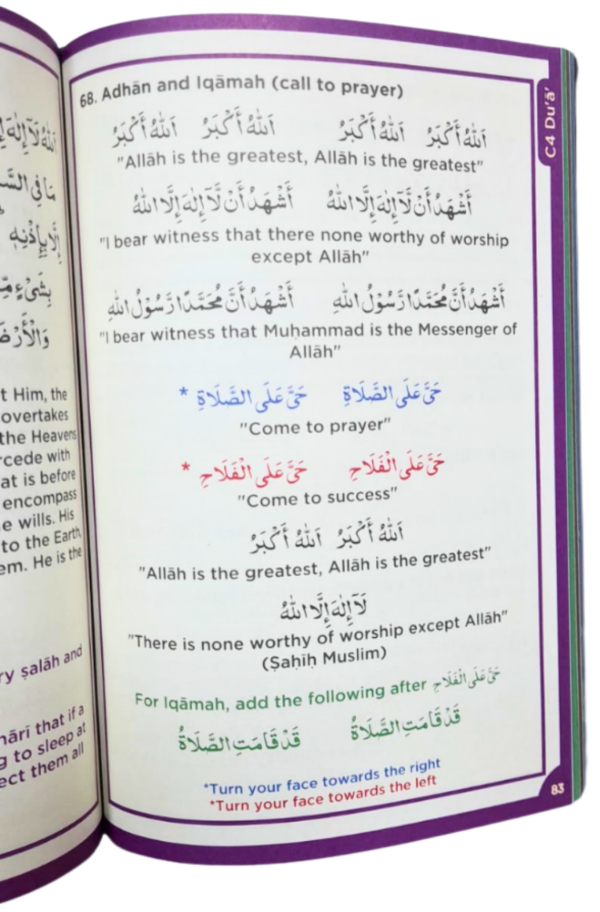 اَللّٰهُ لَآ إِلٰهَ
مَا فِي
إِلَّا بِإِذْنِهٖ
بِشَيْءٍ
t Him, the
overtakes
the Heavens
rcede with
at is before
encompass
e wills. His
to the Earth
em. He is the
ry ṣalāh and
hārī that if a
g to sleep at
ect them all
C4 Du'ā'
68. Adhān and Iqāmah (call to prayer)
اَللّٰهُ أَكْبَرُ اَللّٰهُ أَكْبَرُ اَللّٰهُ أَكْبَرُ اَللّٰهُ أَكْبَرُ
"Allāh is the greatest, Allāh is the greatest"
أَشْهَدُ أَنْ لَّآ إِلٰهَ إِلَّا اللّٰهُ أَشْهَدُ أَنْ لَّآ إِلٰهَ إِلَّا اللّٰهُ
"I bear witness that there none worthy of worship
except Allāh"
أَشْهَدُ أَنَّ مُحَمَّدًا رَّسُوْلُ اللّٰهِ أَشْهَدُ أَنَّ مُحَمَّدًا رَّسُوْلُ اللّٰهِ
"I bear witness that Muḥammad is the Messenger of
Allāh"
حَيَّ عَلَى الصَّلَاةِ حَيَّ عَلَى الصَّلَاةِ *
"Come to prayer"
حَيَّ عَلَى الْفَلَاحِ حَيَّ عَلَى الْفَلَاحِ *
"Come to success"
اَللّٰهُ أَكْبَرُ اَللّٰهُ أَكْبَرُ
"Allāh is the greatest, Allāh is the greatest"
لَآ إِلٰهَ إِلَّا اللّٰهُ
"There is none worthy of worship except Allāh"
(Ṣaḥīḥ Muslim)
For Iqāmah, add the following after حَيَّ عَلَى الْفَلَاحِ
قَدْ قَامَتِ الصَّلَاةُ قَدْ قَامَتِ الصَّلَاةُ
*Turn your face towards the right
*Turn your face towards the left
83